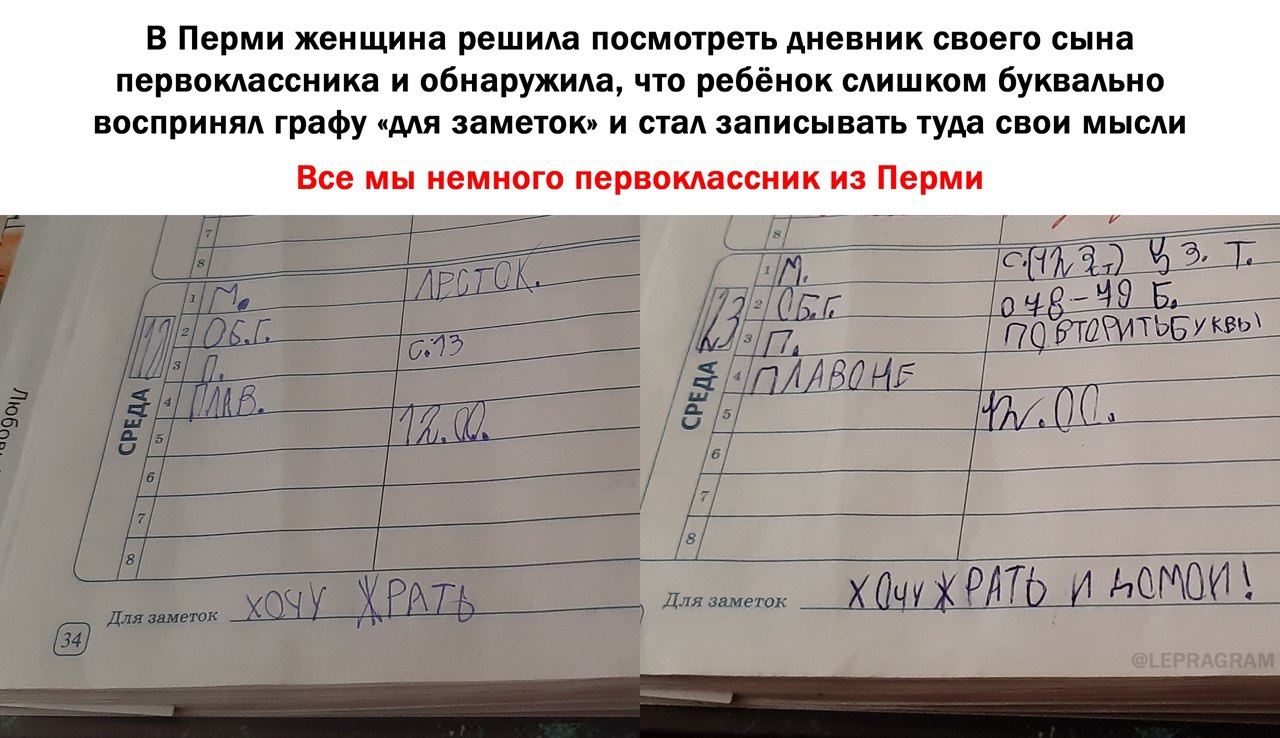 В Перми женщина решила посмотреть дневник своего сына
первоклассника и обнаружила, что ребёнок слишком буквально
воспринял графу «для заметок» и стал записывать туда свои мысли
Все мы немного первоклассник из Перми
7
8
СРЕДА
1 М. ЛЕСТОК.
2 ОБ.Г.
3 П. с.13
4 ПЛАВ.
5 12.00.
6
7
8
Для заметок ХОЧУ ЖРАТЬ
34
Любовь
8
23
СРЕДА
1 М.
2 ОБ.Г. 078-79 Б.
3 П. ПОВТОРИТЬ БУКВЫ
4 ПЛАВОНЕ
5 12.00.
6
7
8
Для заметок ХОЧУ ЖРАТЬ И ДОМОИ!
@LEPRAGRAM